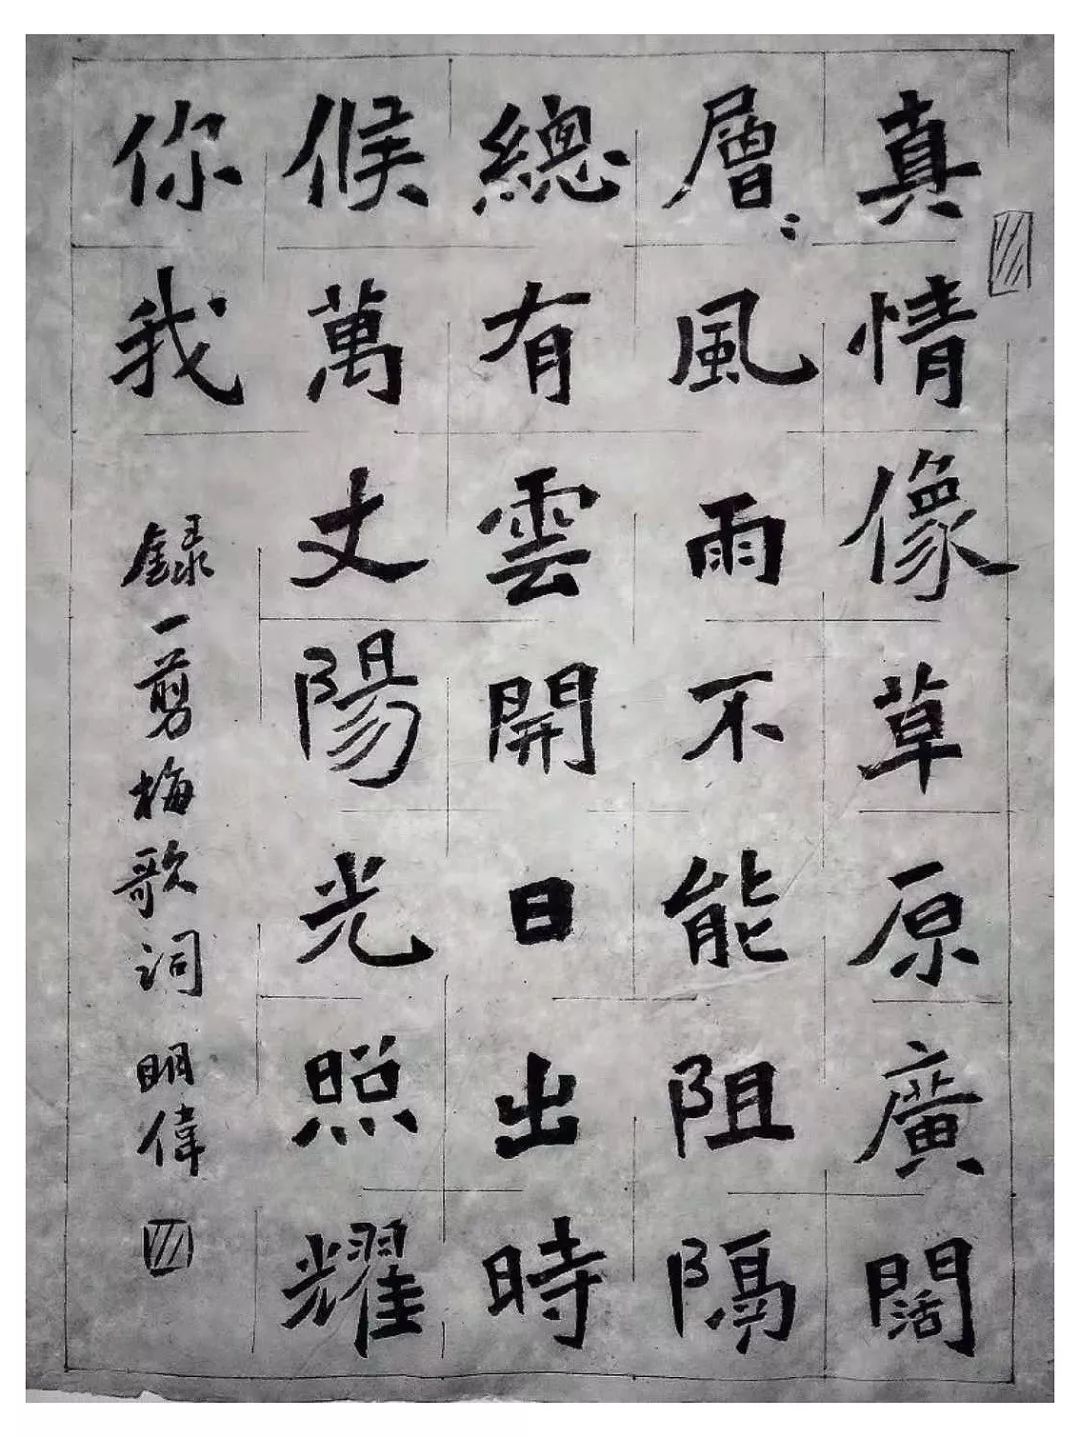 真情像草原廣闊
層：風雨不能阻隔
總有雲開日出時
候萬丈陽光照耀
你我
錄一剪梅歌詞 明偉